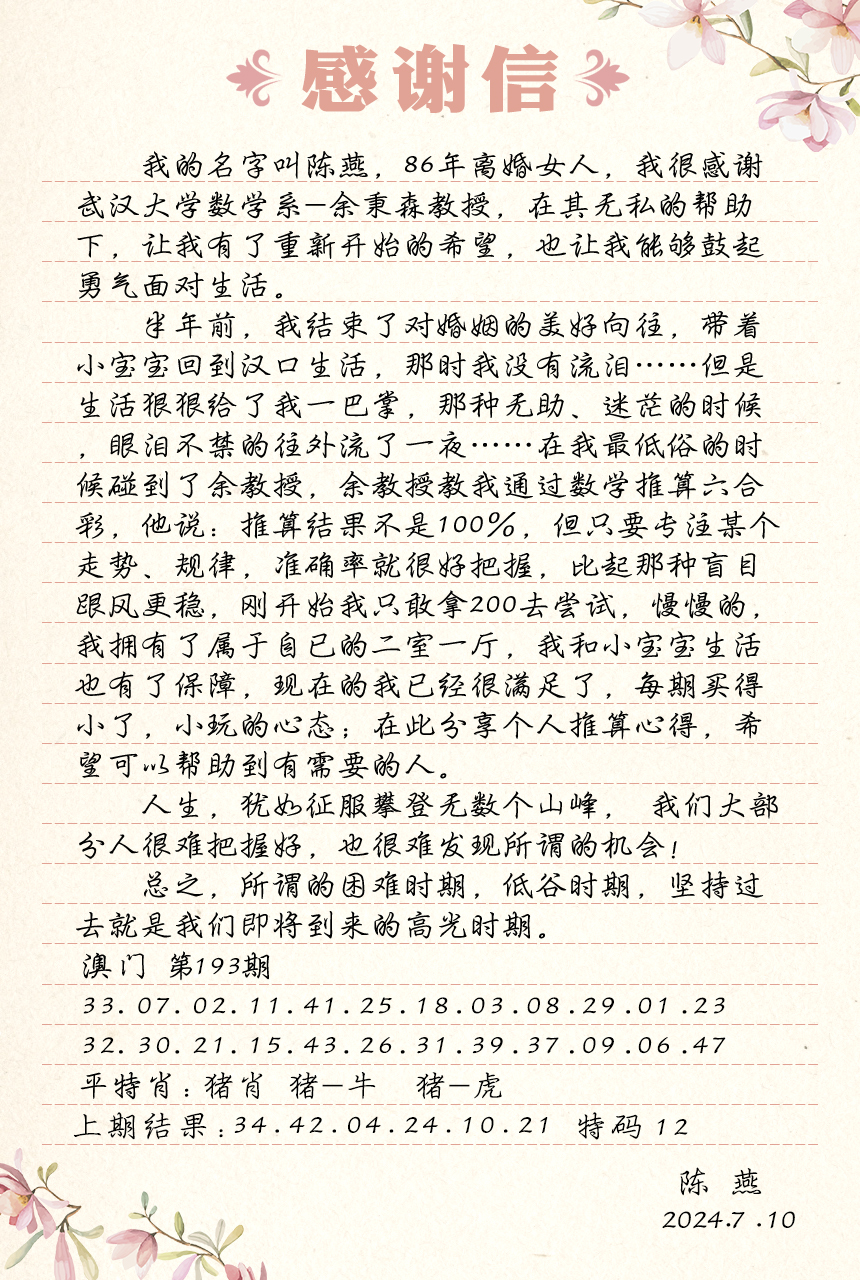 感谢信
我的名字叫陈燕，86年离婚女人，我很感谢
武汉大学数学系—余秉森教授，在其无私的帮助
下，让我有了重新开始的希望，也让我能够鼓起
勇气面对生活。
半年前，我结束了对婚姻的美好向往，带着
小宝宝回到汉口生活，那时我没有流泪……但是
生活狠狠给了我一巴掌，那种无助、迷茫的时候
，眼泪不禁的往外流了一夜……在我最低俗的时
候碰到了余教授，余教授教我通过数学推算六合
彩，他说：推算结果不是100%，但只要专注某个
走势、规律，准确率就很好把握，比起那种盲目
跟风更稳，刚开始我只敢拿200去尝试，慢慢的，
我拥有了属于自已的二室一厅，我和小宝宝生活
也有了保障，现在的我已经很满足了，每期买得
小了，小玩的心态；在此分享个人推算心得，希
望可以帮助到有需要的人。
人生，犹如征服攀登无数个山峰， 我们大部
分人很难把握好，也很难发现所谓的机会！
总之，所谓的困难时期，低谷时期，坚持过
去就是我们即将到来的高光时期。
澳门 第193期
33.07.02.11.41.25.18.03.08.29.01.23
32.30.21.15.43.26.31.39.37.09.06.47
平特肖：猪肖 猪—牛 猪—虎
上期结果：34.42.04.24.10.21 特码 12
陈 燕
2024.7.10